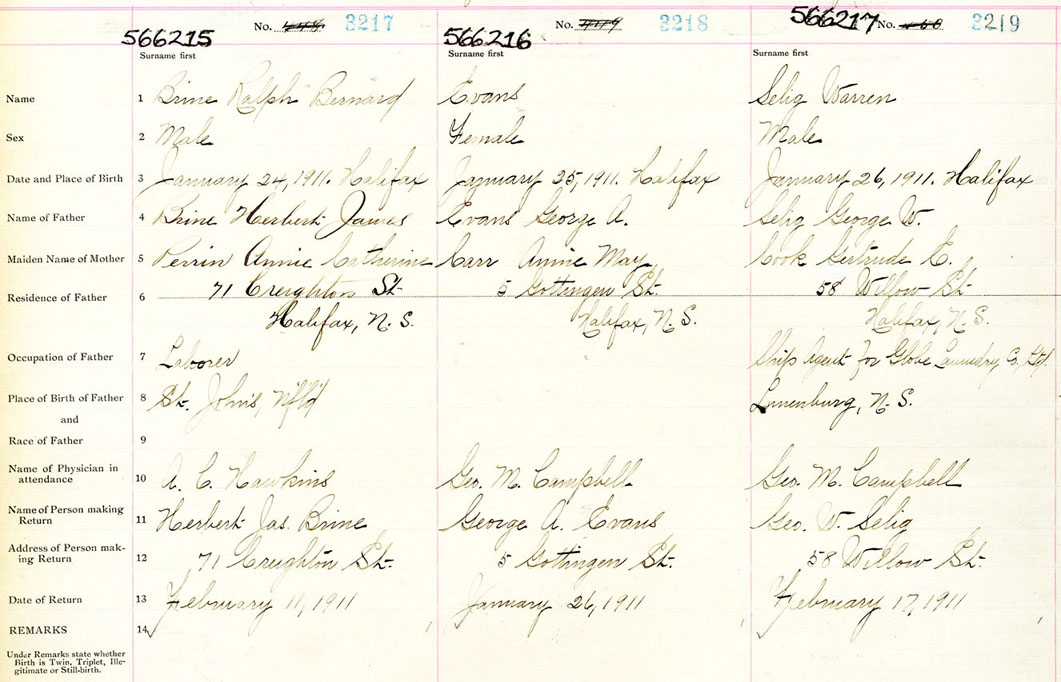 566215 No. 448 3217 566216 No. 449 3218 566217 No. 3219
Surname first Surname first Surname first
Name 1 Brine Ralph Bernard Evans Selig Warren
Sex 2 Male Female Male
Date and Place of Birth 3 January 24, 1911. Halifax January 25, 1911. Halifax January 26, 1911. Halifax
Name of Father 4 Brine Herbert James Evans George A. Selig George W.
Maiden Name of Mother 5 Perrin Annie Catherine Carr Annie May Cook Gertrude E.
Residence of Father 6 71 Creighton St. 5 Gottingen St. 58 Willow St.
Halifax, N. S. Halifax, N. S. Halifax, N. S.
Occupation of Father 7 Laborer Ship Agent for Globe Laundry Co. Ltd.
Place of Birth of Father 8 St. John's, Nfld Lunenburg, N. S.
and
Race of Father 9
Name of Physician in
attendance 10 A. C. Hawkins Geo. M. Campbell Geo. M. Campbell
Name of Person making
Return 11 Herbert Jas. Brine George A. Evans Geo. W. Selig
Address of Person mak-
ing Return 12 71 Creighton St. 5 Gottingen St. 58 Willow St.
Date of Return 13 February 11, 1911 January 26, 1911 February 17, 1911
REMARKS 14
Under Remarks state whether
Birth is Twin, Triplet, Ille-
gitimate or Still-birth.